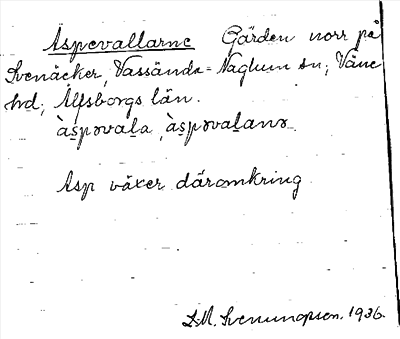 Aspevallarne Gärden norr på
Svenäcker, Vassända-Naglum sn; Väne
hd, Älfsborgs län.
àspəvaḻa, àspəvaḻanə
Asp växer däromkring
1936.